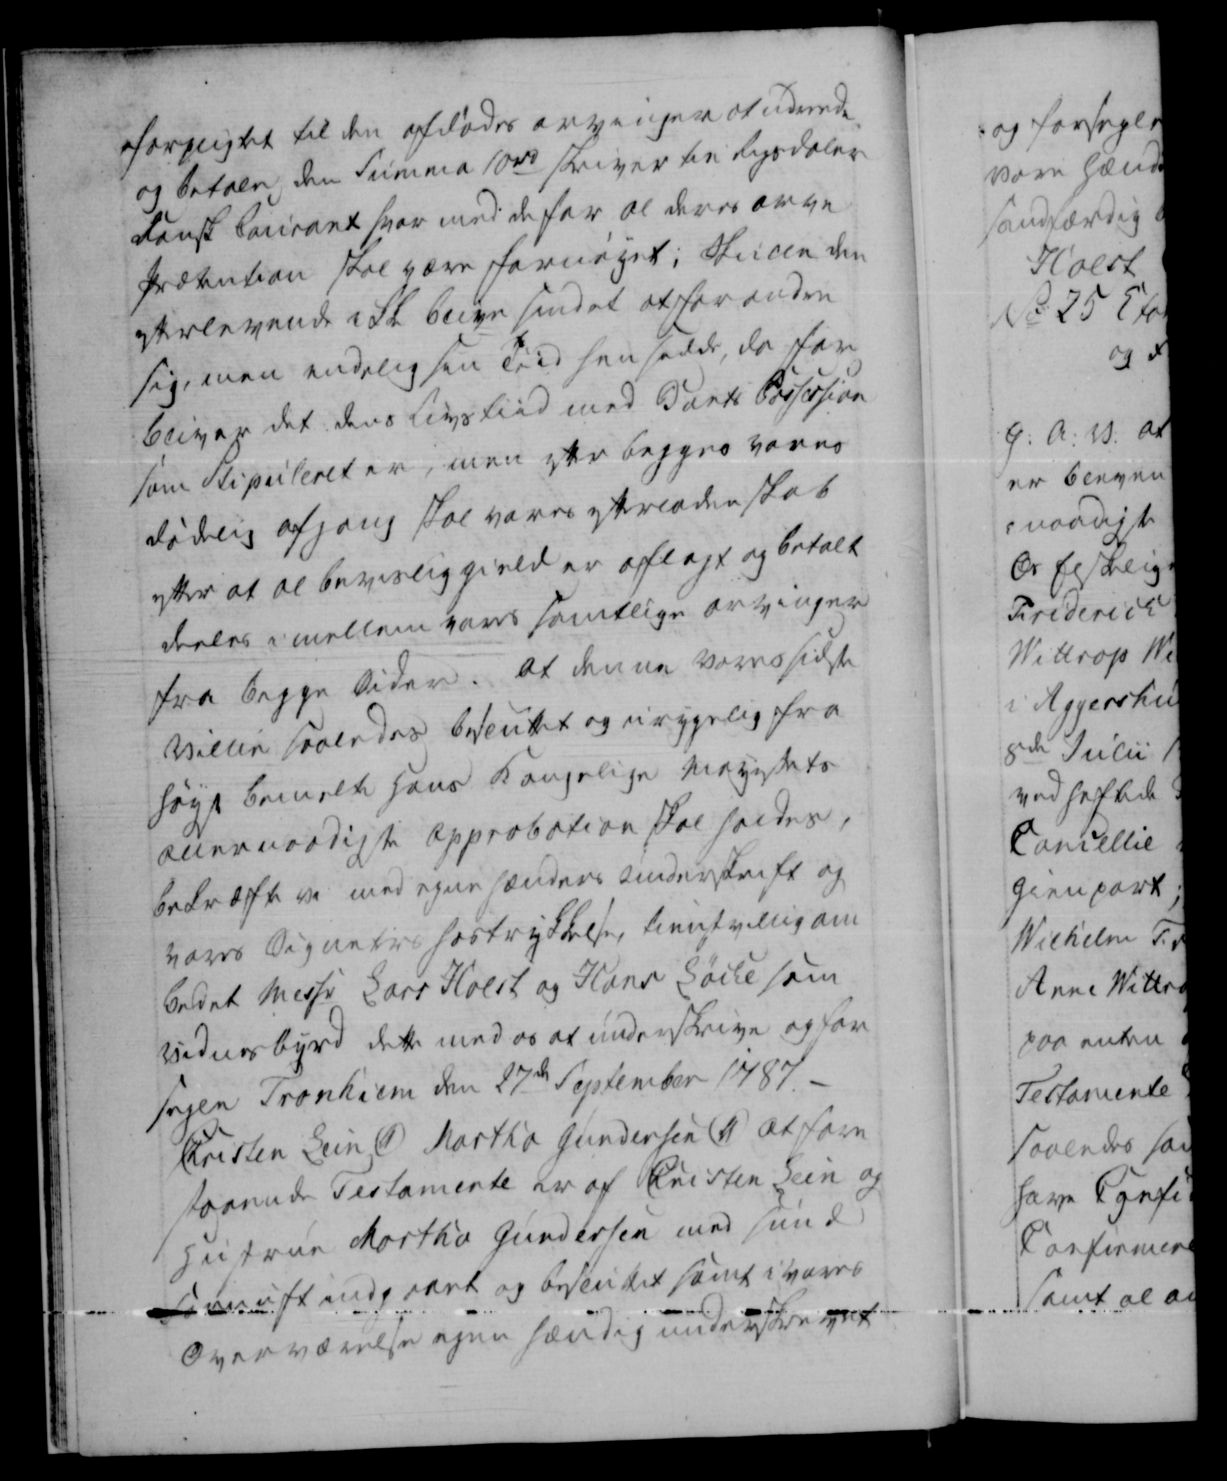 forpligtet til den afdødes arvinger at udrede
og betale den Summa 10 rd skriver tie Rigsdaler
dansk Courant hvor med de for al deres arve
Prætention skal være fornøyet; skulle den
efterlevende ikke blive sindet at forandre
sig, men endelig sin Tiid hensidde, da for
bliver det dens Livs tiid med Boets Possession
som Stipuleret er, men efter begges vores
dødelig afgang skal vores efterladenskab
efter at al beviislig gield er aflagt og betalt
deeles imellem vores samtlige arvinger
fra begge Sider. At denne vores sidste
Villie saaledes besluttet og uryggelig fra
høyst bemelte Hans Kongelige Mayestets
allernaadigste approbation skal holdes,
bekræfte vi med egne hænders underskrift og
vores Signeters hostrykkelse, tienstvillig om
bedet Messrs Lars Holst og Hans Løche som
Vidnesbyrd dette med os at underskrive og for
segle Tronhiem den 27de September 1787.-
Christen Lein (S) Martha Gundersen (S) At fore
staaende Testamente er af Christen Lein og
Hustrue Martha Gundersen med sund
Fornuft indgaaet og besluttet samt i vores
Overværelse egenhændig underskrevet
og forsegle
vore Hænd
sandfærdig
Holst
No 25
og
G: A: V: at
er bleven
naadigst
Friderich
Wittrop
i Aggershu
8de Julii
vedheftede
Cancellie
Gienpart;
Wilhelm
Anne Wittro
paa enten
Testamente
saaledes
have
Confirmere
samt al